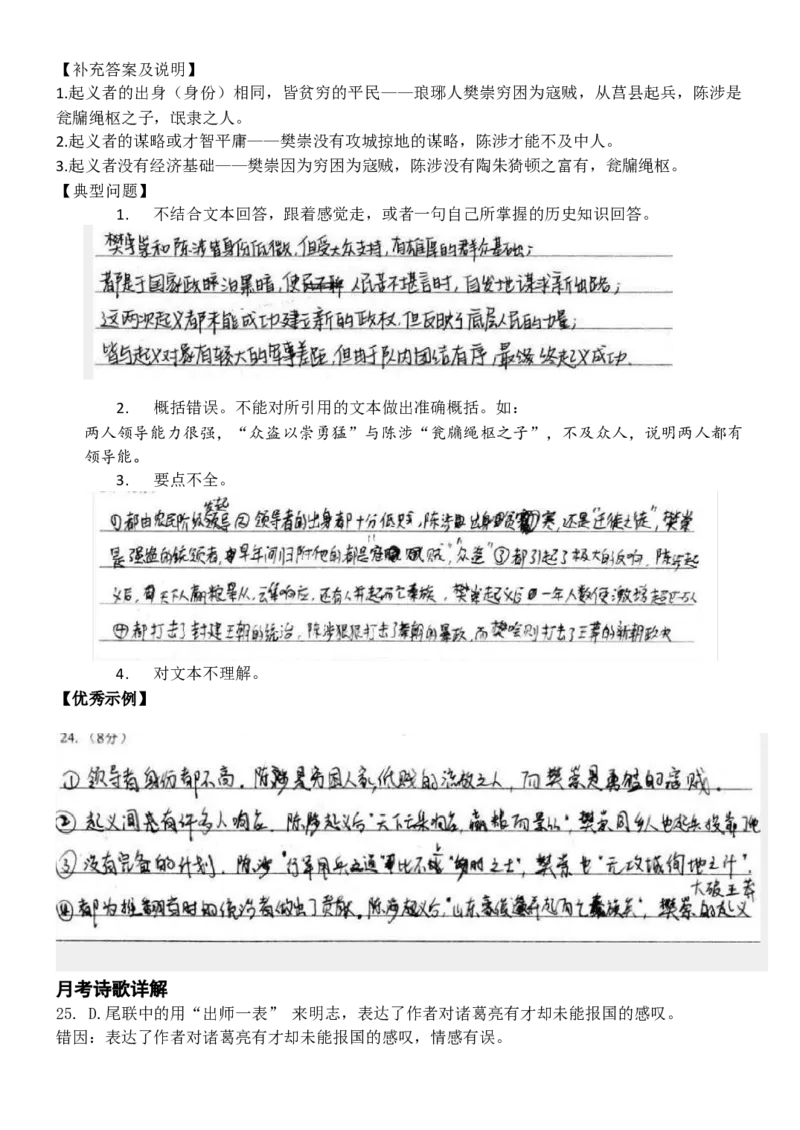 【补充答案及说明】
1.起义者的出身（身份）相同，皆贫穷的平民——琅琊人樊崇穷困为寇贼，从莒县起兵，陈涉是
瓮牖绳枢之子，氓隶之人。
2.起义者的谋略或才智平庸——樊崇没有攻城掠地的谋略，陈涉才能不及中人。
3.起义者没有经济基础——樊崇因为穷困为寇贼，陈涉没有陶朱猗顿之富有，瓮牖绳枢。
【典型问题】
1. 不结合文本回答，跟着感觉走，或者一句自己所掌握的历史知识回答。
樊崇和陈涉皆身份低微，但受大众支持，有雄厚的群众基础；
都是于国家政治黑暗，使人民苦不堪言时，自发地谋求新出路；
这两次起义都未能成功建立新的政权，但反映了底层人民的力量；
皆与起义对象有较大的军事差距，但由于队内团结有序，最终起义成功.
2. 概括错误。不能对所引用的文本做出准确概括。如：
两人领导能力很强，“众盗以崇勇猛”与陈涉“瓮牖绳枢之子”，不及众人，说明两人都有
领导能。
3. 要点不全。
①都由农民阶级发起 ②领导者的出身都十分低贱，陈涉出身贫寒，还是“迁徙之徒”，樊崇
是强盗的统领者，早年间归附他的都是寇贼，“众盗”③都引起了极大的反响，陈涉起
义后，天下人赢粮景从，云集响应，还有人并起而亡秦族，樊崇起义后一年人数便激增超万人
④都打击了封建王朝的统治，陈涉狠狠打击了秦朝的暴政，而樊崇则打击了王莽的新朝政权
4. 对文本不理解。
【优秀示例】
24.（8分）
①领导者身份都不高。陈涉是穷困人家，低贱的流放之人，而樊崇是勇猛的寇贼。
②起义同是有许多人响应。陈涉起义后“天下云集响应，赢粮而景从”，樊崇同乡人也起兵投靠了他
③没有完备的计划。陈涉“行军用兵之道”比不上“曩时之士”，樊崇也“无攻城徇地之计”.
④都为推翻当时的统治者做出了贡献。陈涉起义后，“山东豪俊遂并起而亡秦族矣”，樊崇的起义大破王莽
月考诗歌详解
25. D.尾联中的用“出师一表” 来明志，表达了作者对诸葛亮有才却未能报国的感叹。
错因：表达了作者对诸葛亮有才却未能报国的感叹，情感有误。